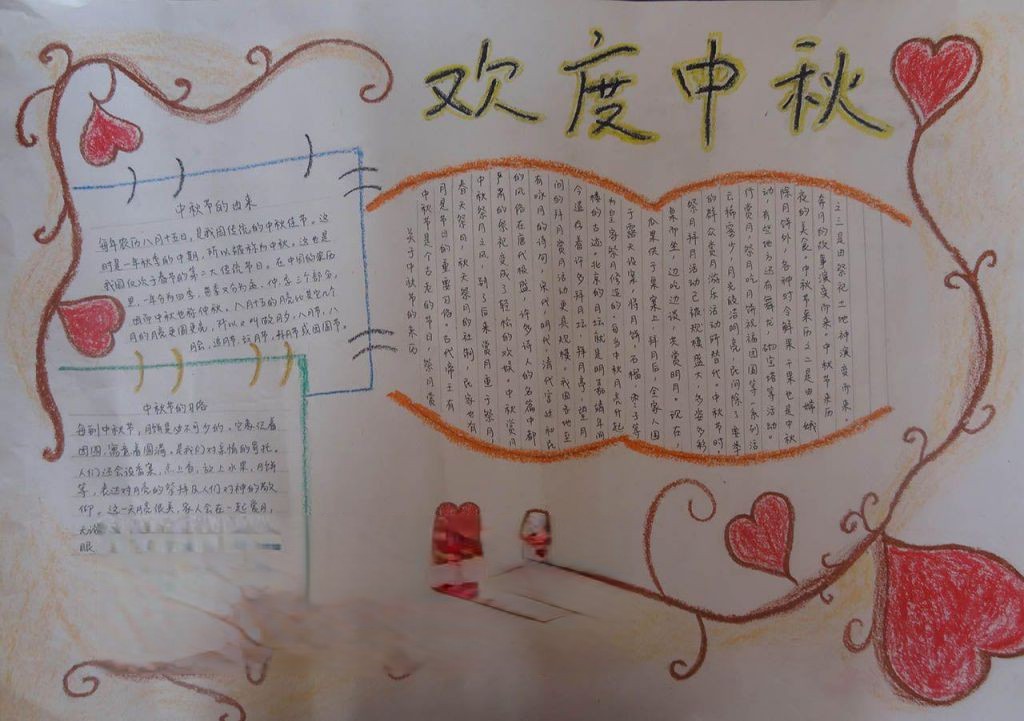 欢度中秋
中秋节的由来
每年农历八月十五日,是我国传统的中秋佳节。这
时是一年秋季的中期,所以被称为中秋。这也是
我国仅次于春节的第二大传统节日。在中国的农历
里,一年分为四季,每季又分为孟、仲、季三个部分,
因而中秋也称仲秋。八月十五的月亮比其它几个
月的月亮更圆更亮,所以又叫做月夕,八月节,八
月会,追月节,玩月节,拜月节或团圆节。
中秋节的习俗
每到中秋节,月饼是必不可少的。它象征着
团圆,寓意着圆满。是我们对亲情的寄托。
人们还会设香案,点上香,放上水果,月饼
等,表达对月亮的崇拜及人们对神的敬
仰。这一天月亮很美,家人会在一起赏月,
关于中秋节的来历
中秋节是个古老的节日,祭月赏
月是节日的重要习俗。古代帝王有
春天祭日,秋天祭月的社制,民家也有
中秋祭月之风,到了后来赏月重于祭月,
严肃的祭祀变成了轻松的欢娱。中秋赏月
的风俗在唐代极盛,许多诗人的名篇中都
有咏月的诗句,宋代,明代,清代宫廷和民
间的拜月赏月活动更具规模。我国各地至
今遗存着许多拜月坛,拜月亭,望月
楼的古迹。北京的月坛就是明嘉靖年间
为皇家祭月修造的。每当中秋月亮升起,
于露天设案,将月饼,石榴,枣子等
瓜果供于桌案上,拜月后,全家人围
桌而坐,边吃边谈,共赏明月。现在,
祭月拜月活动已被规模盛大、多姿多彩
的群众赏月游乐活动所替代。中秋节时,
云稀雾少,月光皎洁明亮,民间除了要举
行赏月,祭月,吃月饼祝福团圆等一系列活
动,有些地方还有舞龙,砌宝塔等活动。
除月饼外,各种时令鲜果干果也是中秋
夜的美食。中秋节来历之二是由嫦娥
奔月的故事演变而来。中秋节来历
之三是由祭祀土地神演变而来。